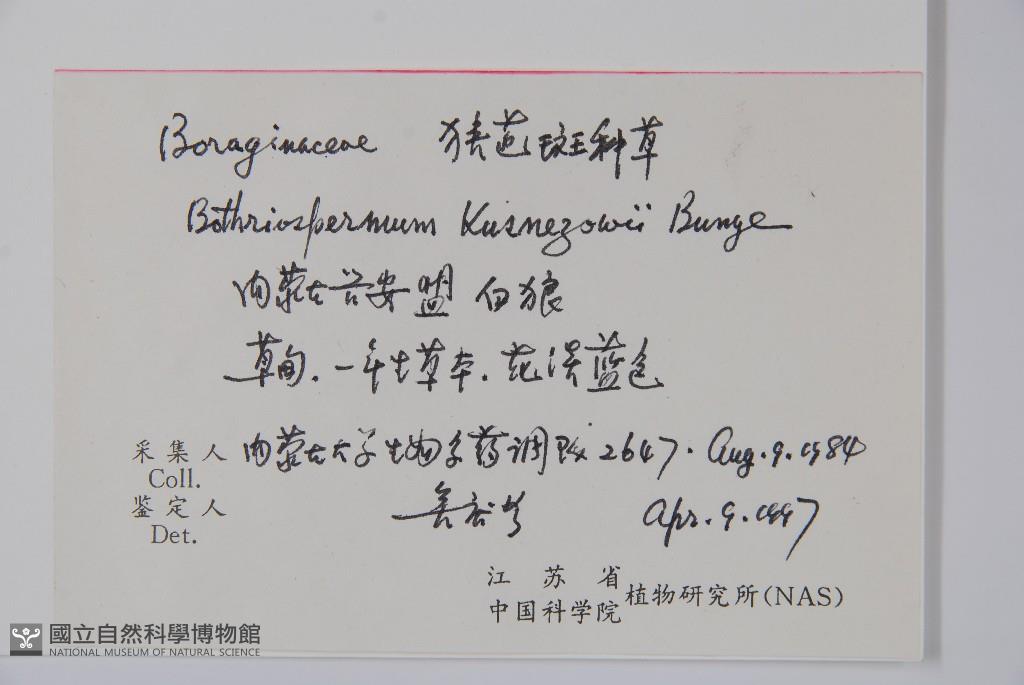 Boraginaceae 狭苞斑种草
Bothriospermum Kusnezowii Bunge
内蒙古兴安盟 白狼
草甸.一年生草本.花淡蓝色
采集人 内蒙古大学生物系药调队 2647. Aug.9.1984
Coll.
鉴定人 Apr.9.1997
Det.
江苏省
中国科学院 植物研究所(NAS)
國立自然科學博物館
NATIONAL MUSEUM OF NATURAL SCIENCE